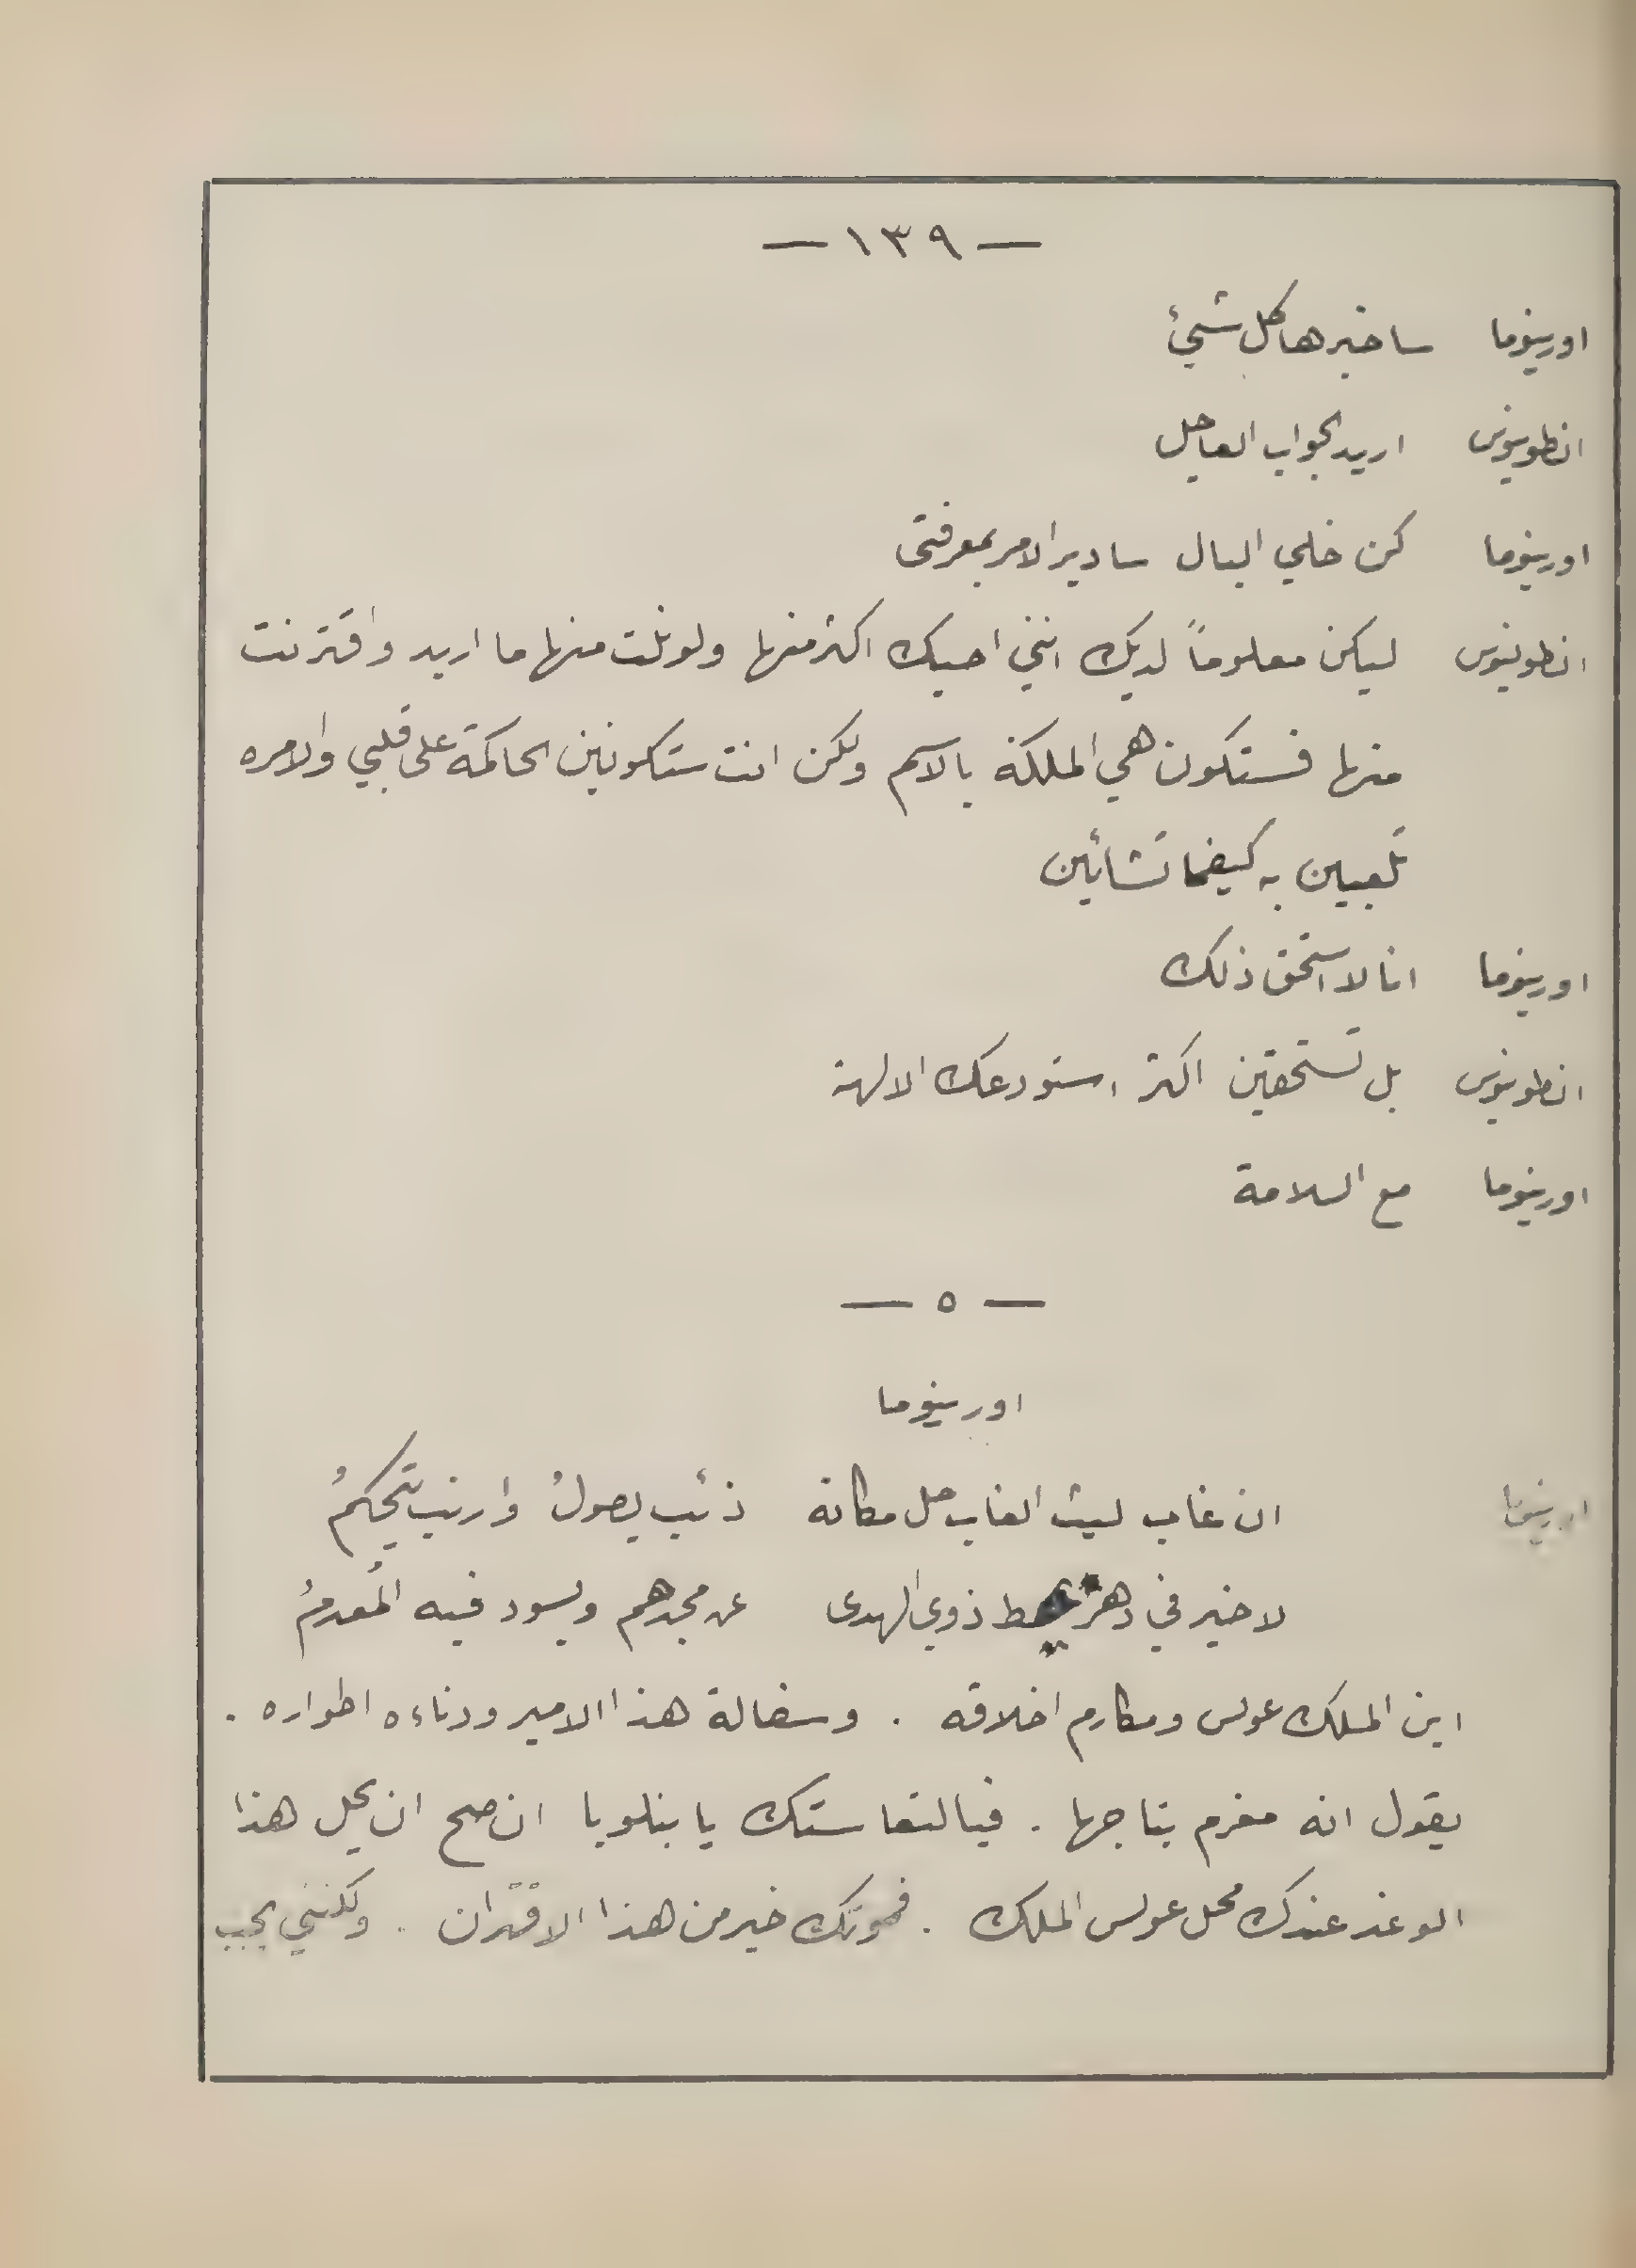 — ١٣٩ —
اورينوما ساخبرها كل شيئ
انطونيوس اريد الجواب العاجل
اورينوما كن خلي البال سادير الامر بمعرفتي
انطونيوس ليكن معلوماً لديك انني احبك اكثر منها ولو نلت منها ما اريد واقترنت
منها فستكون هي الملكة بالاسم ولكن انت ستكونين الحاكمة على قلبي والامره
تلعبين به كيفما تشائين
اورينوما انا لا استحق ذلك
انطونيوس بل تستحقين اكثر استودعك الالهة
اورينوما مع السلامة
— ٥ —
اورينوما
اورينوما ان غاب ليث الغاب حل مكانه ذئب يصولُ وارنب يتحكمُ
لا خير في دهر يحط ذوي الهدى عن مجدهم ويسود فيه المُعدمُ
اين الملك عولس ومكارم اخلاقه . وسفالة هذا الامير ودناءه اطواره .
يقول انه مغرم بتاجها . فيا لتعاستك يا بنلوبا ان صح ان يحل هذا
الوغد عندك محل عولس الملك . فموتك خير من هذا الاقتران . ولكنني يجب